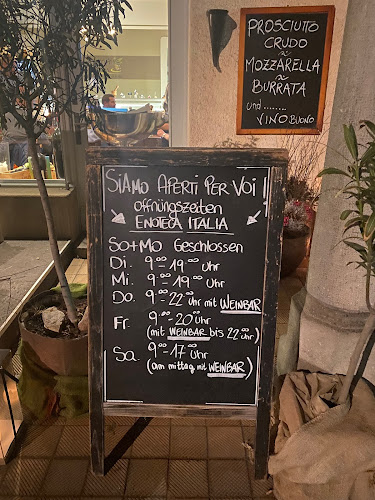 PROSCIUTTO
CRUDO
~
MOZZARELLA
~
BURRATA
und........
VINO BUONO
SiAMO APERTI PER VOI!
öffnungszeiten
ENOTECA ITALIA
SO+MO GESCHLOSSEN
Di. 9⁰⁰-19⁰⁰ Uhr
Mi. 9⁰⁰-19⁰⁰ Uhr
Do. 9⁰⁰-22⁰⁰ Uhr mit WEINBAR
Fr. 9⁰⁰-20⁰⁰ Uhr
(mit WEINBAR bis 22⁰⁰ Uhr)
Sa. 9⁰⁰-17⁰⁰ Uhr
(am mittag mit WEINBAR)